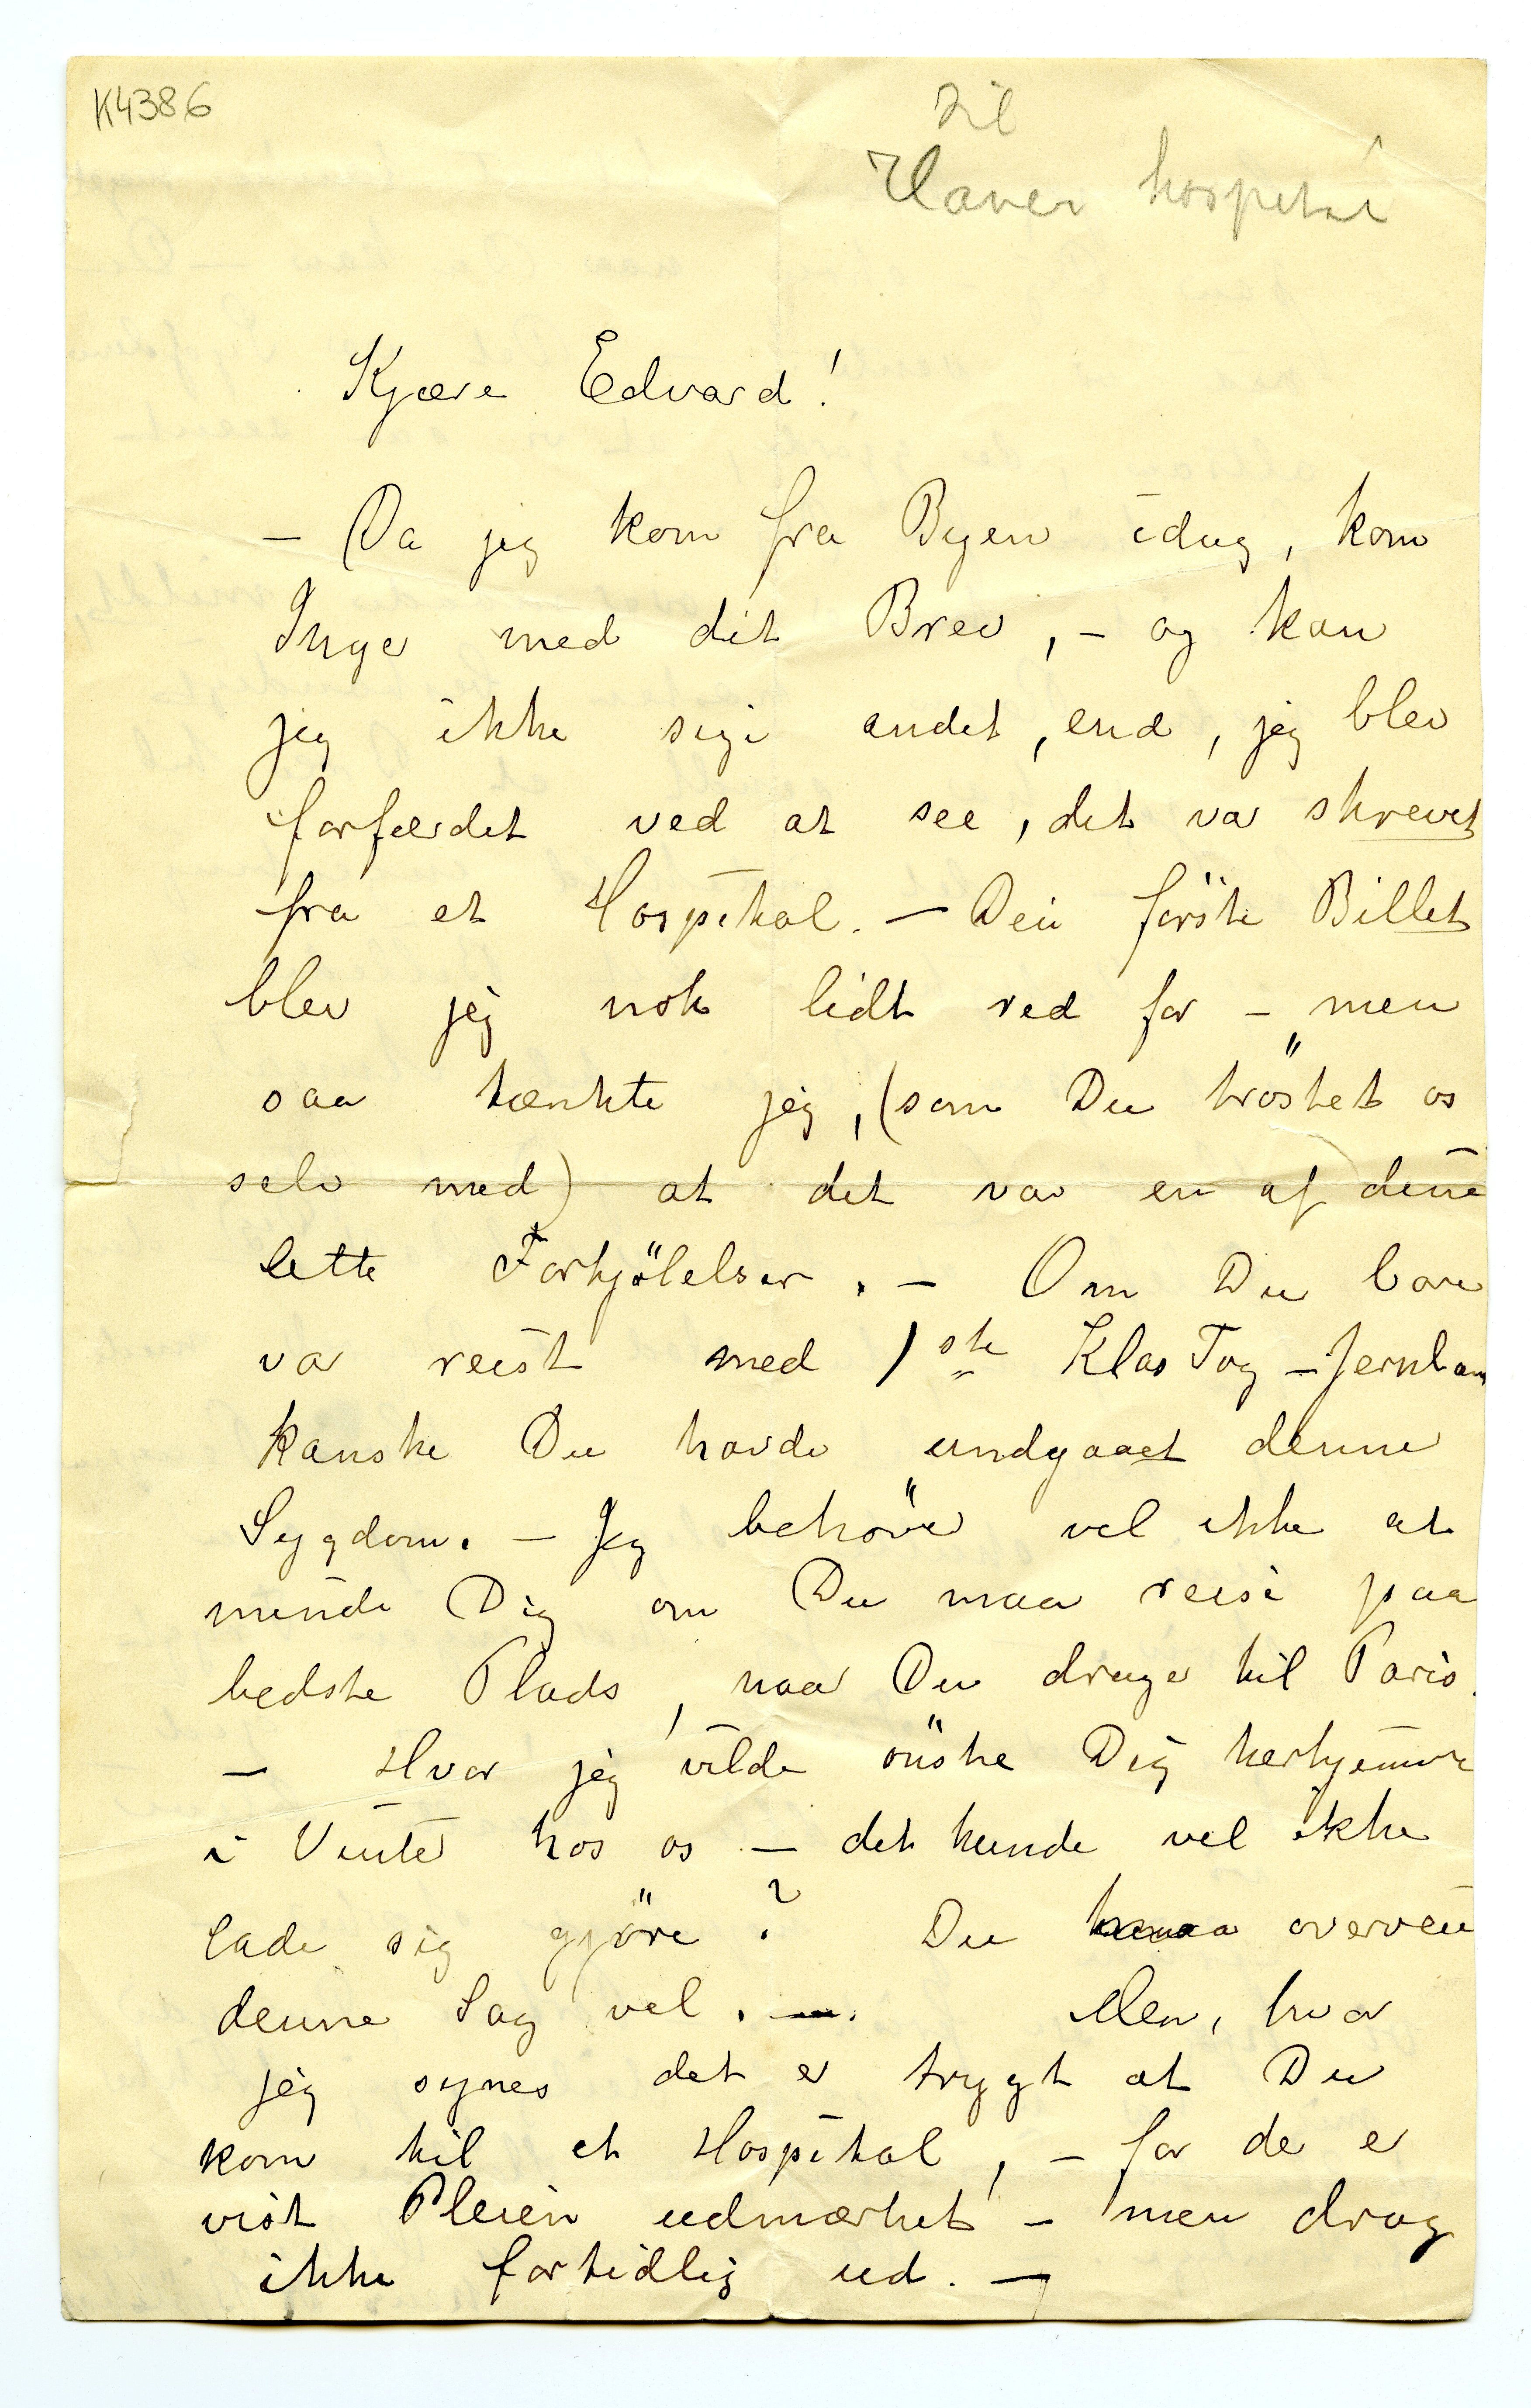 K4386
Til
Haver hospital
Kjære Edvard!
– Da jeg kom fra Byen idag, kom
Inger med dit Brev, – og kan
jeg ikke sige andet, end, jeg blev
forfærdet ved at see, det var skrevet
fra et Hospital. – Den förste Billet
blev jeg nok lidt ræd for – men
saa tænkte jeg, (som Du tröstet os
selv med) at det var en af dine
lette Forkjölelser. – Om Du bare
var reist med 1ste Klas Tog – Jernban
kanske Du havde undgaaet denne
Sygdom. – Jeg behöver vel ikke at
minde Dig om Du maa reise paa
bedste Plads, naar Du drager til Paris.
– Hvor jeg vilde önske Dig herhjemme
i Vinter hos os – det kunde vel ikke
lade sig gjöre? Du maa overveie
denne Sag vel. –. Men, hvor
jeg synes det er trygt at Du
kom til et Hospital, – for der er
vist Pleien udmærket – men drag
ikke fortidlig ud. –